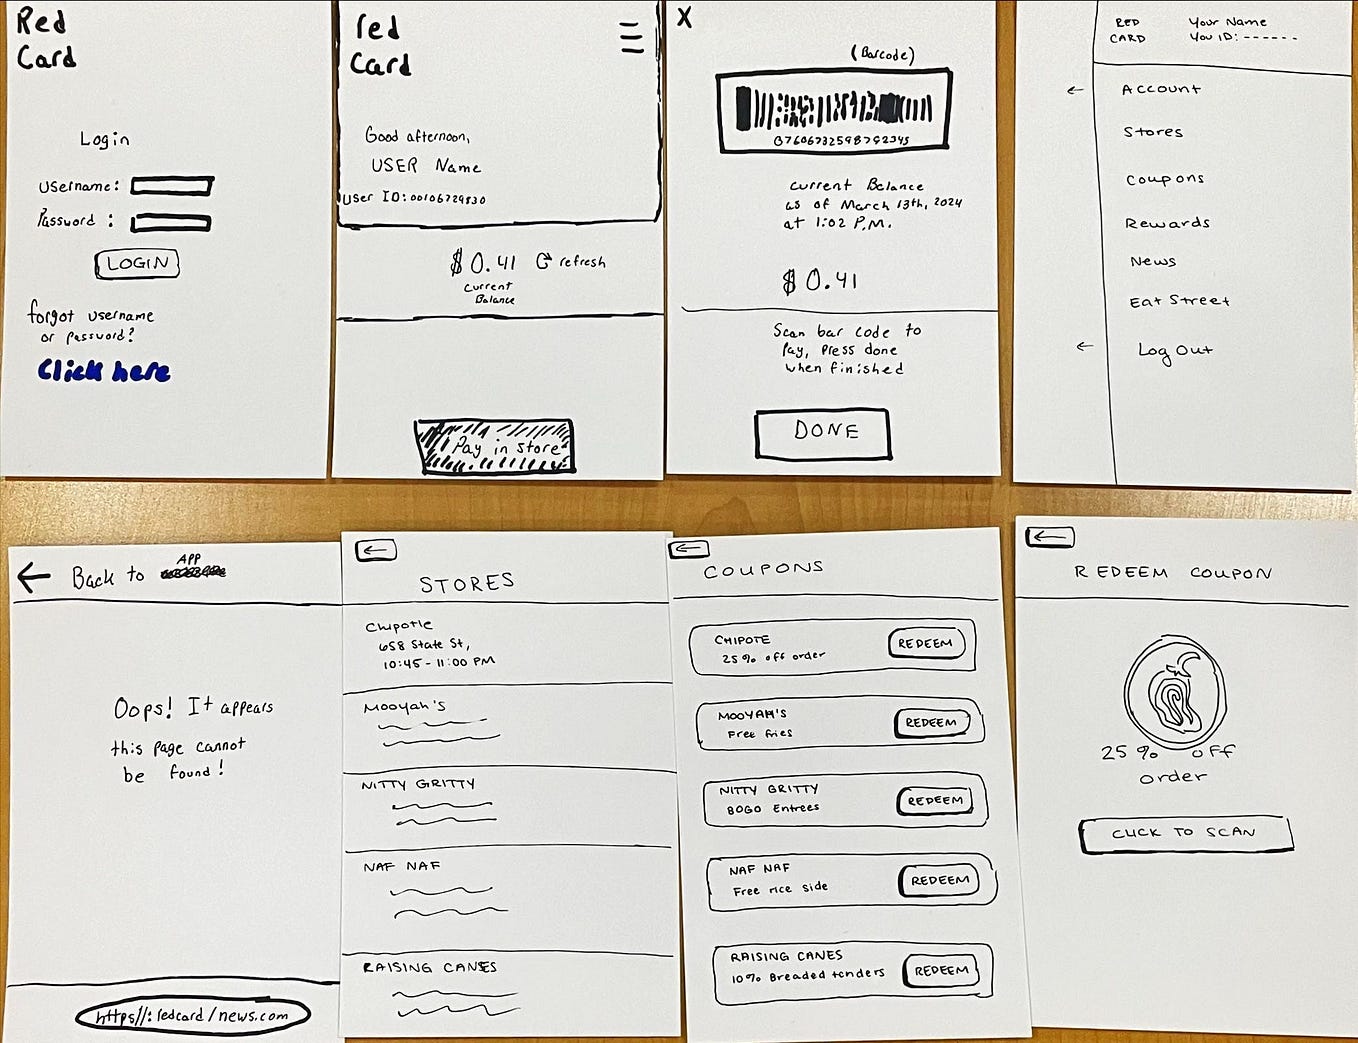 Red
Card
Login
Username:
Password :
LOGIN
forgot username
or password?
Click here
red
Card
Good afternoon,
USER Name
User ID:00106729830
$ 0.41 refresh
Current
Balance
Pay in store
X
(Barcode)
Current Balance
as of March 13th, 2024
at 1:02 P.M.
$ 0.41
Scan bar code to
Pay, Press done
when finished
DONE
RED
CARD
Your Name
You ID: ------
← Account
Stores
Coupons
Rewards
News
Eat Street
← Log Out
← Back to APP
Oops! It appears
this page cannot
be found!
https//:redcard/news.com
←
STORES
Chipotle
658 State St,
10:45 - 11:00 PM
MOOYAH'S
NITTY GRITTY
NAF NAF
RAISING CANES
←
COUPONS
CHIPOTE
25% off order
REDEEM
MOOYAH'S
Free fries
REDEEM
NITTY GRITTY
BOGO Entrees
REDEEM
NAF NAF
Free rice side
REDEEM
RAISING CANES
10% Breaded tenders
REDEEM
←
REDEEM COUPON
25% off
order
CLICK TO SCAN